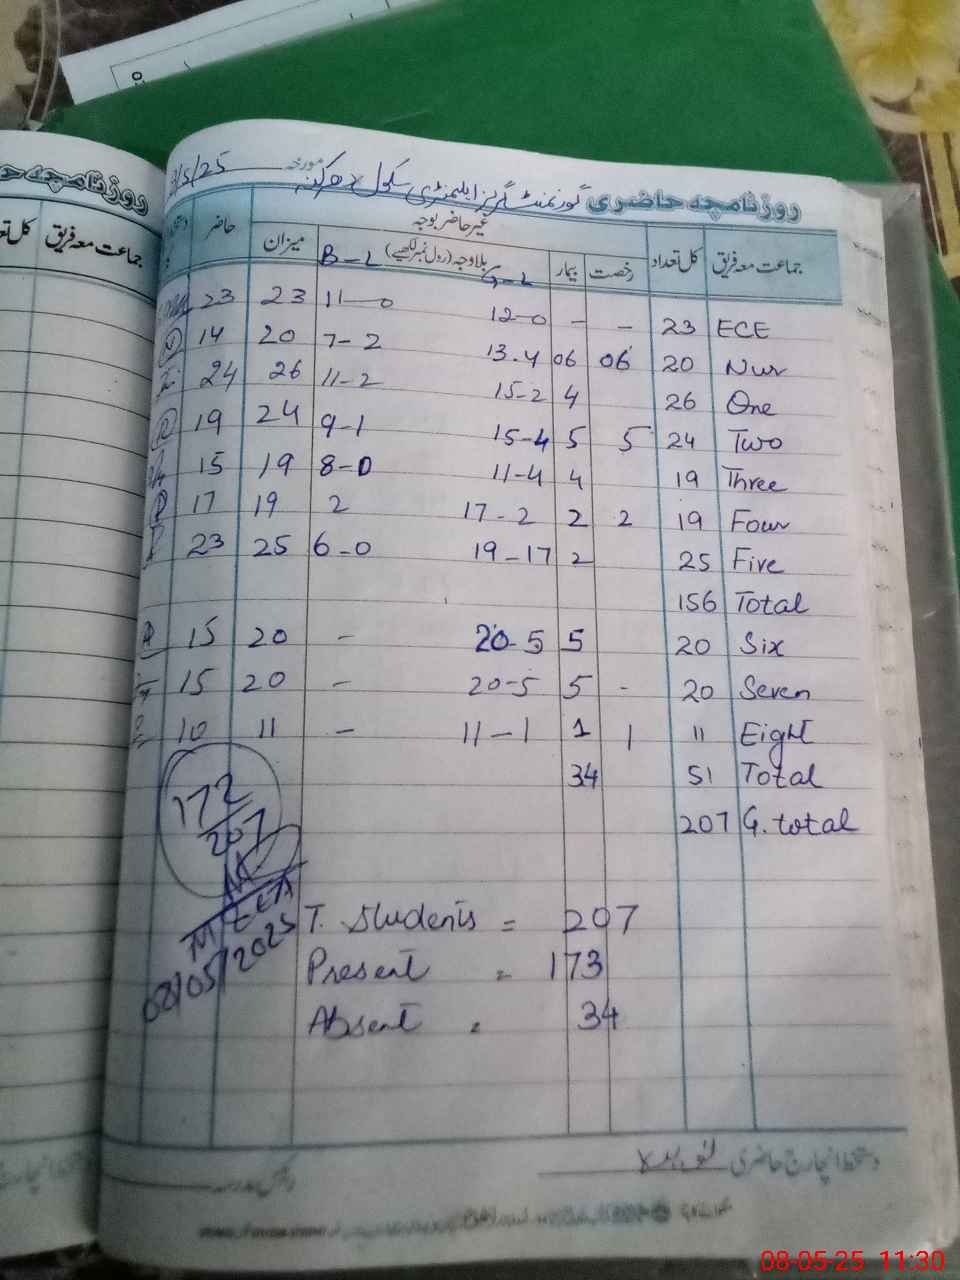 روزنامچہ حاضری گورنمنٹ گرلز ایلیمنٹری سکول مورخہ /5/25
جماعت معہ فریق کل تعداد غیر حاضر بوجہ حاضر
رخصت بیمار بلاوجہ (رول نمبر لکھیے) میزان
G-L B-L
23 23 11-0 12-0 - - 23 ECE
14 20 7-2 13-4 06 06 20 Nur
24 26 11-2 15-2 4 26 One
19 24 9-1 15-4 5 5 24 Two
15 19 8-0 11-4 4 19 Three
17 19 2 17-2 2 2 19 Four
23 25 6-0 19-17 2 25 Five
156 Total
15 20 - 20-5 5 20 Six
15 20 - 20-5 5 - 20 Seven
10 11 - 11-1 1 1 11 Eight
34 51 Total
207 G. total
172
207
MEEA
08/05/2025
T. Students = 207
Present = 173
Absent = 34
دستخط انچارج حاضری
روزنامچہ
جماعت معہ فریق
08-05-25 11:30